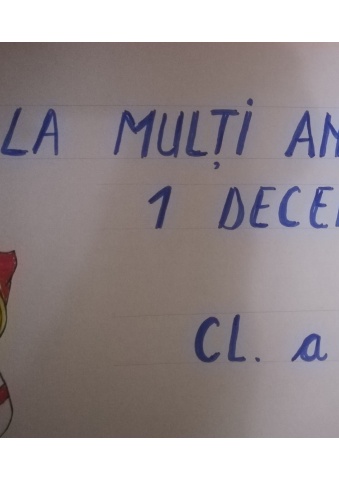 LA MULȚI AN
1 DECE
CL. a